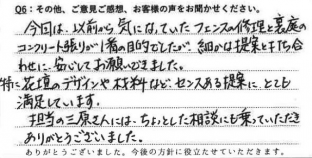 Q6：その他、ご意見ご感想、お客様の声をお聞かせください。
今回は、以前から気になっていたフェンスの修理と裏庭の
コンクリート張りが1番の目的でしたが、細かな提案と打ち合
わせに、安心してお願いできました。
特に花壇のデザインや材料など、センスある提案に、とても
満足しています。
担当の三原さんには、ちょっとした相談にも乗っていただき
ありがとうございました。
ありがとうございました。今後の方針に役立たせていただきます。